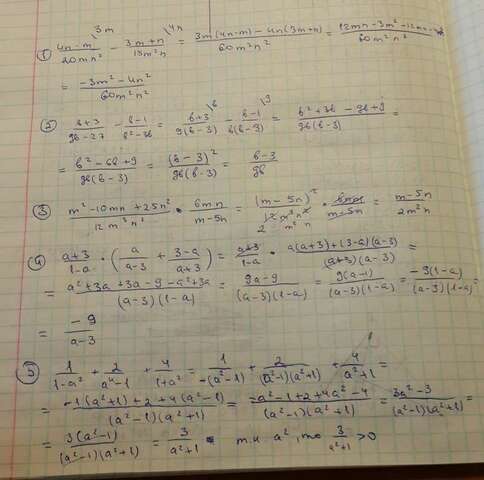 ① \3m \4n
(4n-m)/(20mn²) - (3m+n)/(15m²n) = (3m(4n-m) - 4n(3m+n))/(60m²n²) = (12mn-3m²-12mn-4n²)/(60m²n²)
= (-3m²-4n²)/(60m²n²)
② (b+3)/(9b-27) - (b-1)/(b²-3b) = (b+3)\b/(9(b-3)) - (b-1)\9/(b(b-3)) = (b²+3b-9b+9)/(9b(b-3)) =
= (b²-6b+9)/(9b(b-3)) = (b-3)²/(9b(b-3)) = (b-3)/(9b)
③ (m²-10mn+25n²)/(12m³n²) • 6mn/(m-5n) = (m-5n)²/(12m³n²) • 6mn/(m-5n) = (m-5n)/(2m²n)
2 m²n
④ (a+3)/(1-a) • (a/(a-3) + (3-a)/(a+3)) = (a+3)/(1-a) • (a(a+3)+(3-a)(a-3))/((a+3)(a-3)) =
= (a²+3a+3a-9-a²+3a)/((a-3)(1-a)) = (9a-9)/((a-3)(1-a)) = 9(a-1)/((a-3)(1-a)) = -9(1-a)/((a-3)(1-a)) =
= -9/(a-3)
⑤ 1/(1-a²) + 2/(a⁴-1) + 4/(1+a²) = 1/(-(a²-1)) + 2/((a²-1)(a²+1)) + 4/(a²+1) =
= (-1(a²+1)+2+4(a²-1))/((a²-1)(a²+1)) = (-a²-1+2+4a²-4)/((a²-1)(a²+1)) = (3a²-3)/((a²-1)(a²+1)) =
= 3(a²-1)/((a²-1)(a²+1)) = 3/(a²+1) т.к a², то 3/(a²+1) >0